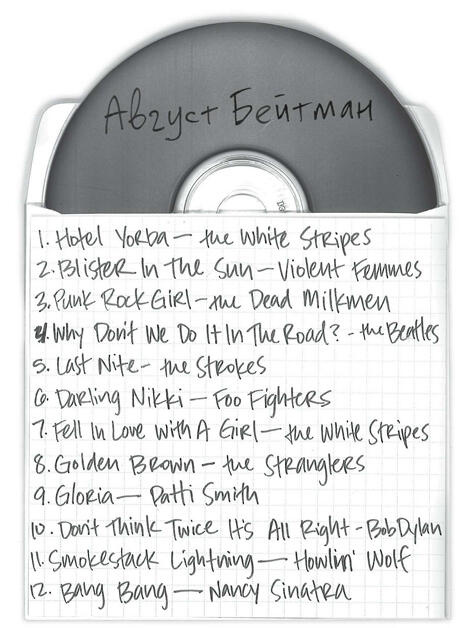 Август Бейтман
1. Hotel Yorba — the White Stripes
2. Blister In The Sun — Violent Femmes
3. Punk Rock Girl — the Dead Milkmen
4. Why Don't We Do It In The Road? - the Beatles
5. Last Nite - the Strokes
6. Darling Nikki — Foo Fighters
7. Fell In Love With A Girl — the White Stripes
8. Golden Brown — the Stranglers
9. Gloria — Patti Smith
10. Don't Think Twice It's All Right - Bob Dylan
11. Smokestack Lightning — Howlin' Wolf
12. Bang Bang — Nancy Sinatra